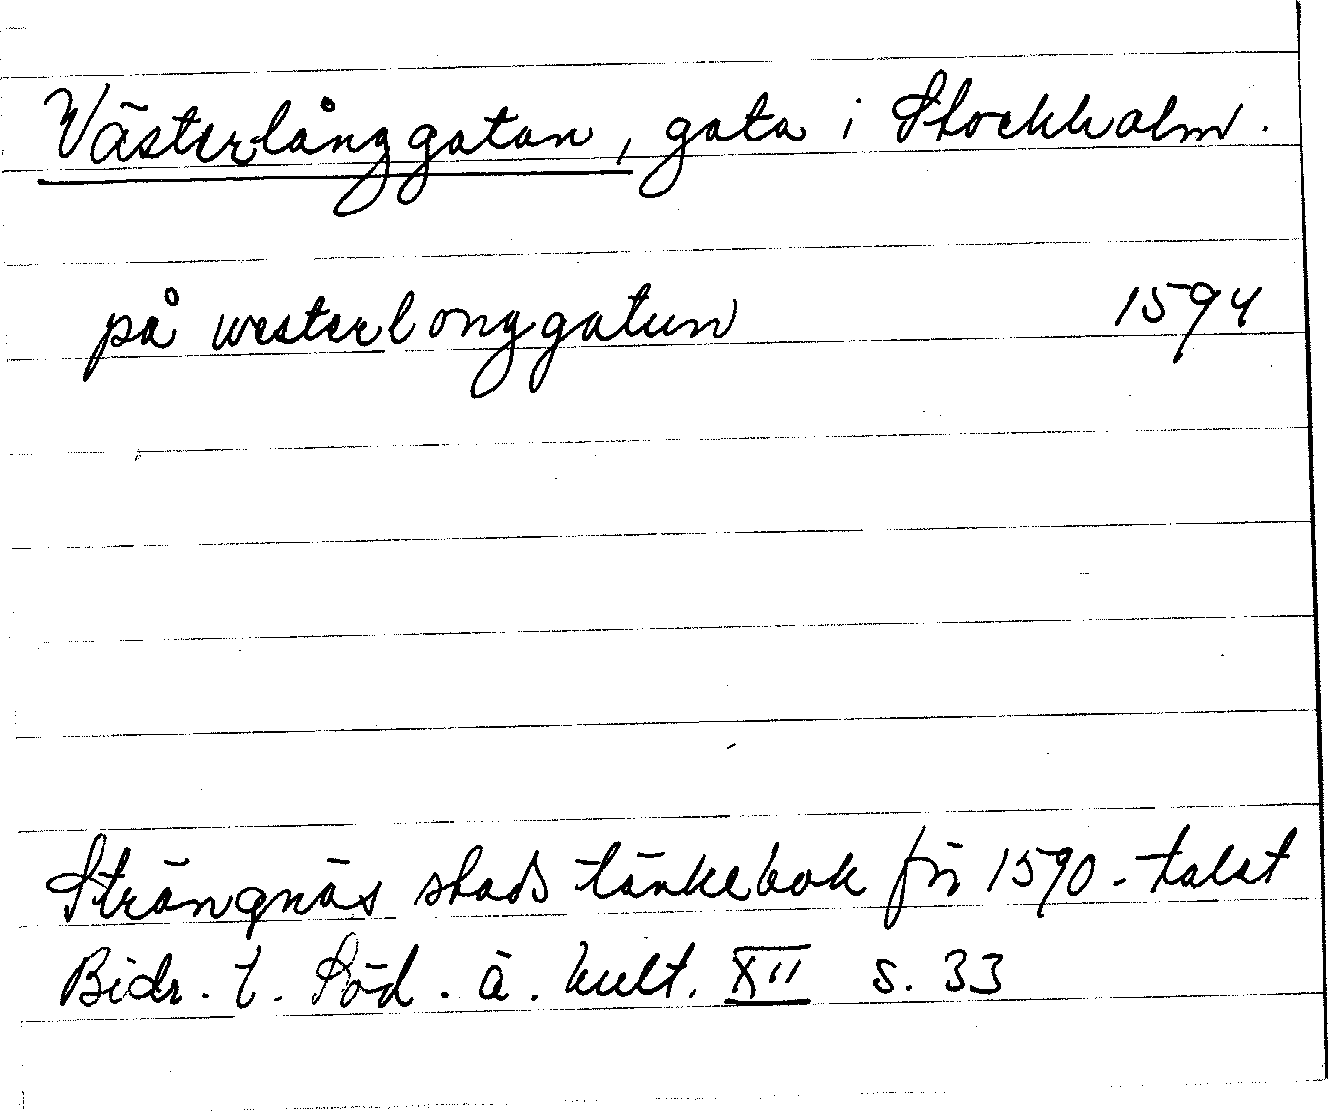 Västerlånggatan, gata i Stockholm.
på westerlonggatun 1594
Strängnäs stads tänkebok för 1590-talet
Bidr. t. Söd. ä. kult. XII s. 33